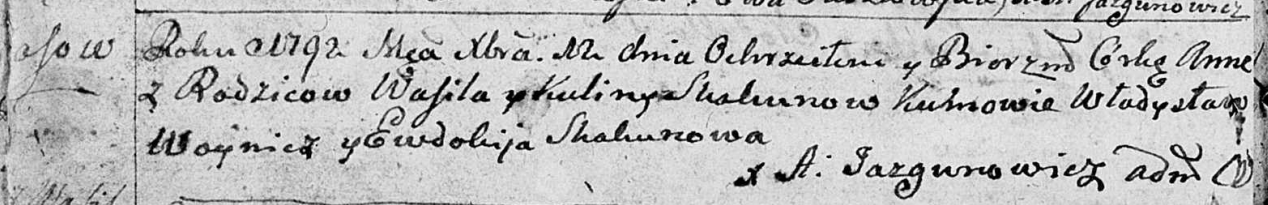 Jazgunowicz
Sow Roku 1792 Mca Xbra. 12 dnia Ochrzciłem y Bierzm Corkę Annę
z Rodzicow Wasila y Kuliny Skakunow Kumowie Władysław
Woynicz y Ewdokija Skakunowa
x A. Jazgunowicz adm